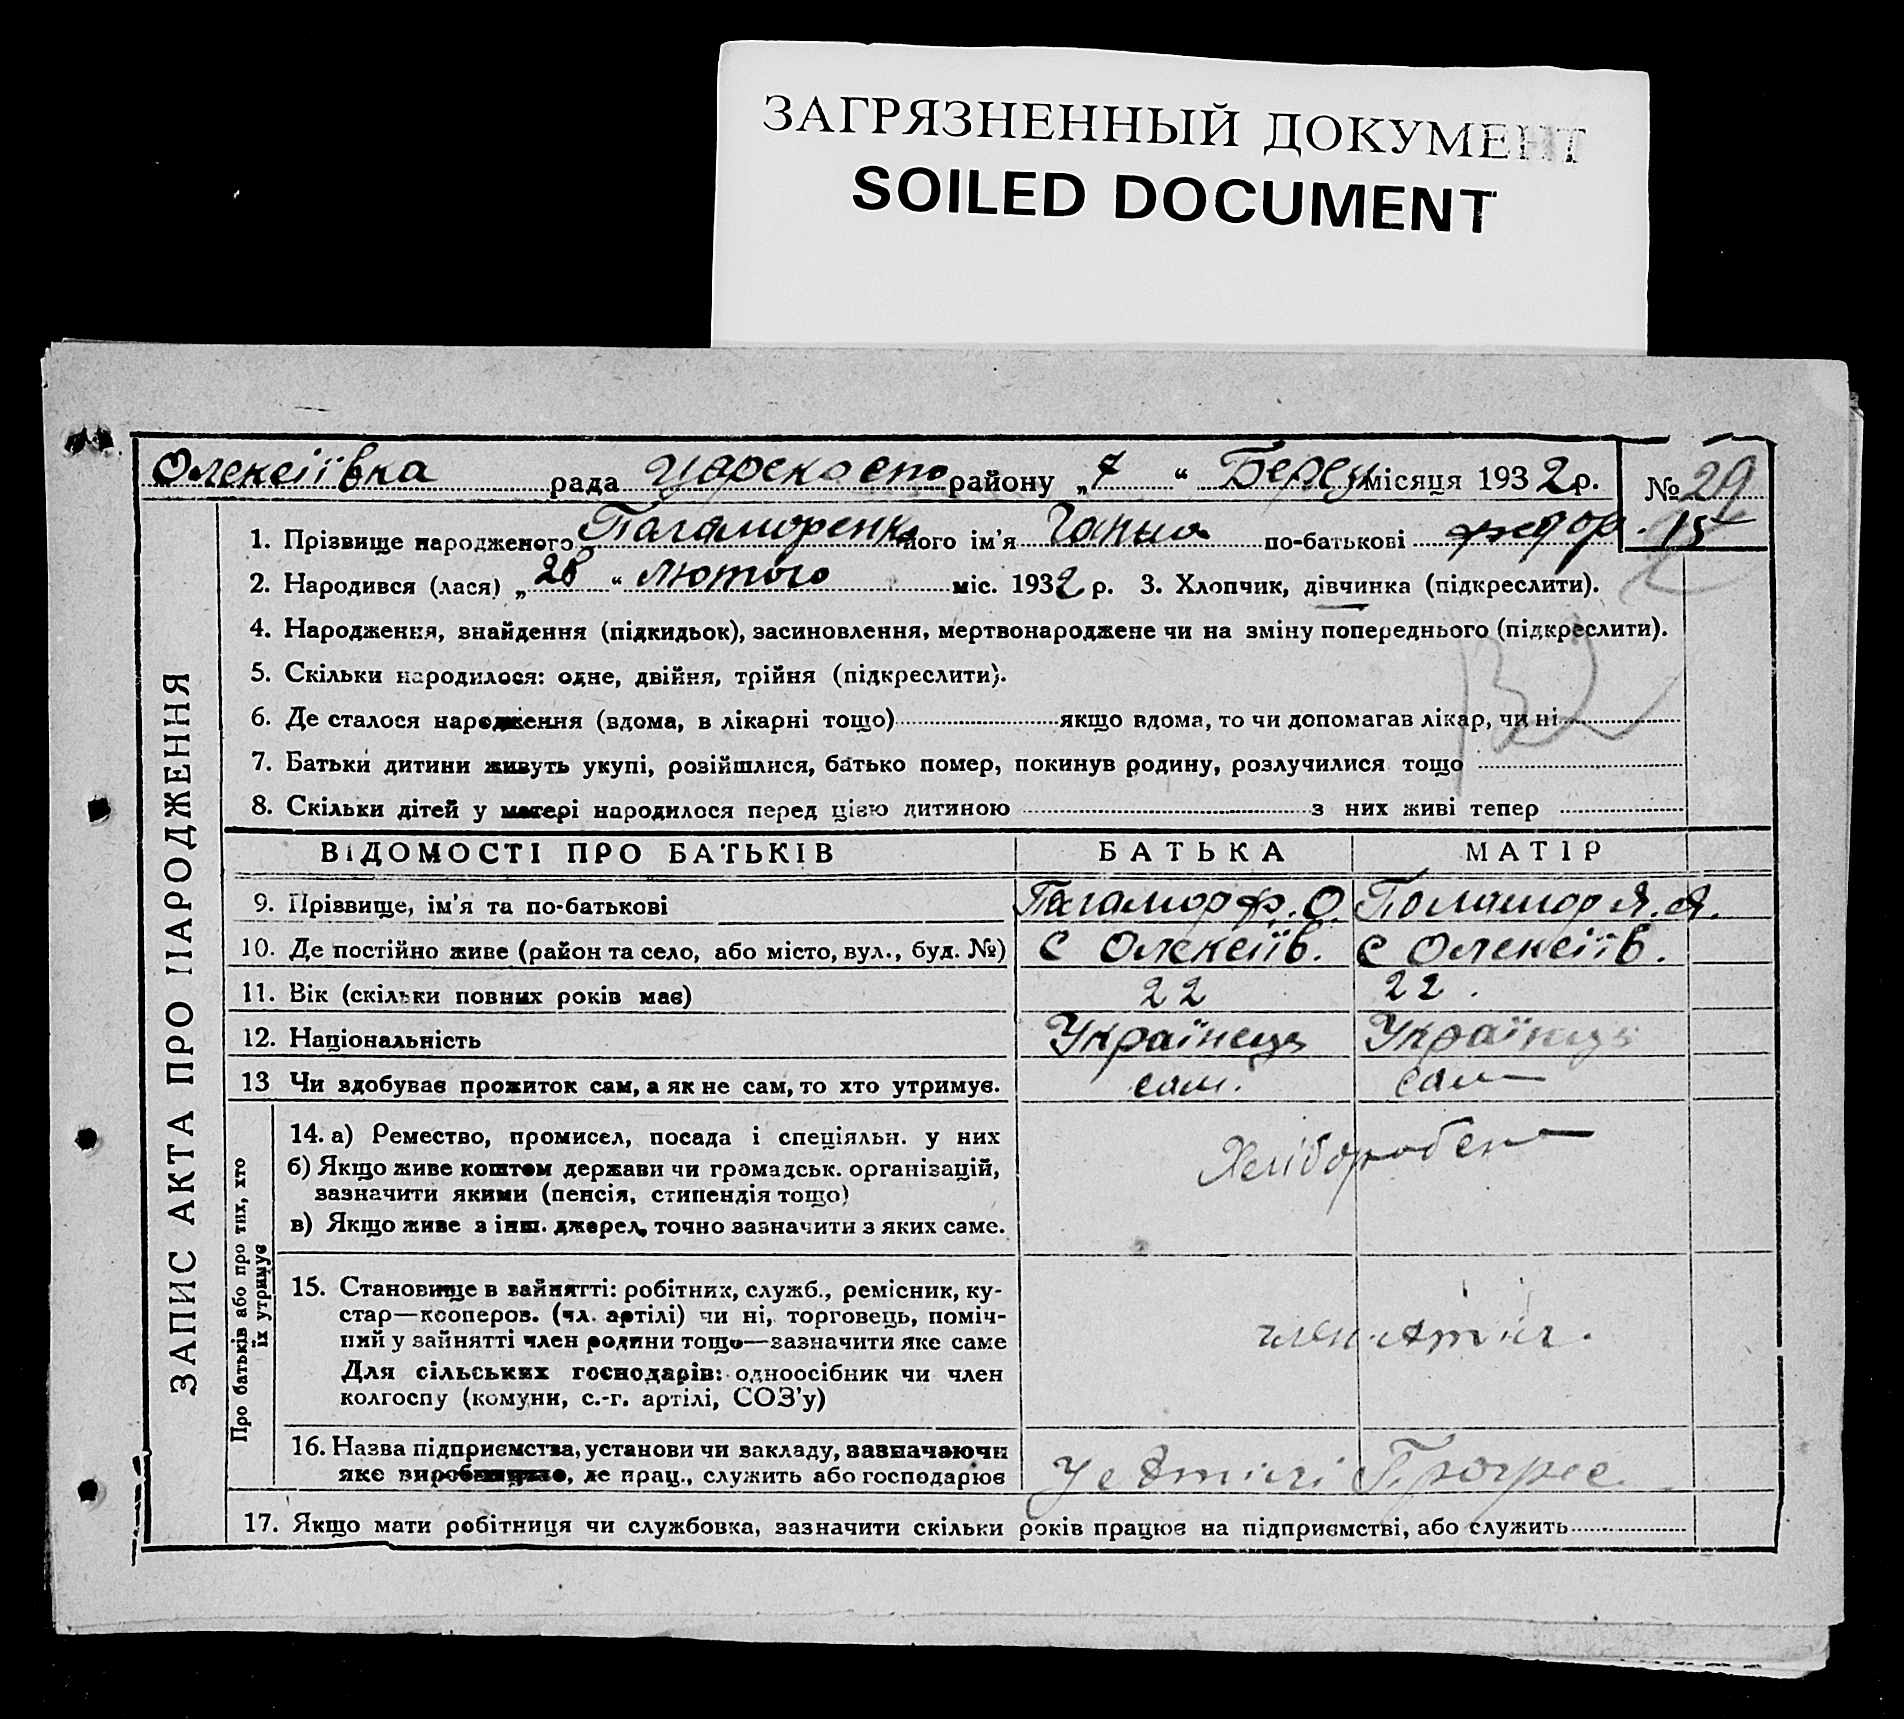 ЗАГРЯЗНЕННЫЙ ДОКУМЕНТ
SOILED DOCUMENT
Олексіївка рада району „7“ Берез місяця 1932 р. № 29
15
1. Прізвище народженого його ім'я Ганна по-батькові Федор.
2. Народився (лася) „28“ лютого міс. 1932 р. 3. Хлопчик, дівчинка (підкреслити).
4. Народження, знайдення (підкидьок), засиновлення, мертвонароджене чи на зміну попереднього (підкреслити).
5. Скільки народилося: одне, двійня, трійня (підкреслити).
6. Де сталося народження (вдома, в лікарні тощо) якщо вдома, то чи допомагав лікар, чи ні
7. Батьки дитини живуть укупі, розійшлися, батько помер, покинув родину, розлучилися тощо
8. Скільки дітей у матері народилося перед цією дитиною з них живі тепер
ЗАПИС АКТА ПРО НАРОДЖЕННЯ
ВІДОМОСТІ ПРО БАТЬКІВ БАТЬКА МАТІР
9. Прізвище, ім'я та по-батькові Ф. О. Я. Я.
10. Де постійно живе (район та село, або місто, вул., буд. №) С Олексіїв. С Олексіїв.
11. Вік (скільки повних років має) 22 22.
12. Національність Українець Українць
13 Чи здобуває прожиток сам, а як не сам, то хто утримує. сам. сам
Про батьків або про тих, хто
їх утримує
14. а) Ремество, промисел, посада і спеціяльн. у них
б) Якщо живе коштом держави чи громадськ. організацій,
зазначити якими (пенсія, стипендія тощо)
в) Якщо живе з інш. джерел, точно зазначити з яких саме.
Хліборобен
15. Становище в зайнятті: робітник, служб., ремісник, ку-
стар—кооперов. (чл. артілі) чи ні, торговець, поміч-
ний у зайнятті член родини тощо—зазначити яке саме
Для сільських господарів: одноосібник чи член
колгоспу (комуни, с.-г. артілі, СОЗ'у)
член
16. Назва підприємства, установи чи закладу, зазначаючи
яке виробництво, де прац., служить або господарює
Прогрес
17. Якщо мати робітниця чи службовка, зазначити скільки років працює на підприємстві, або служить